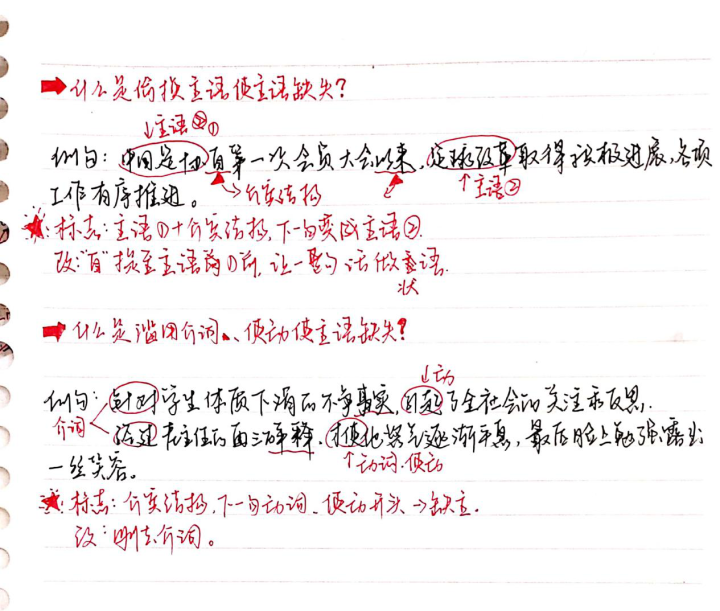 ➡什么是偷换主语使主语缺失?
↓主语①
例句:中国足协自第一次会员大会以来,足球改革取得积极进展,各项
工作有序推进。 →介宾结构 ↑主语②
★:标志:主语①+介宾结构,下一句变成主语②.
改:"自"换至主语①前,让一整句话做状语.
➡什么是滥用介词、使动使主语缺失?
↓动
例句:针对学生体质下滑的不争事实,引起了全社会的关注和反思.
介词 经过老主任的再三解释,才使他怒气逐渐平息,最后脸上勉强露出
一丝笑容。 ↑动词.使动
★:标志:介宾结构,下一句动词、使动开头→缺主.
改:删去介词。